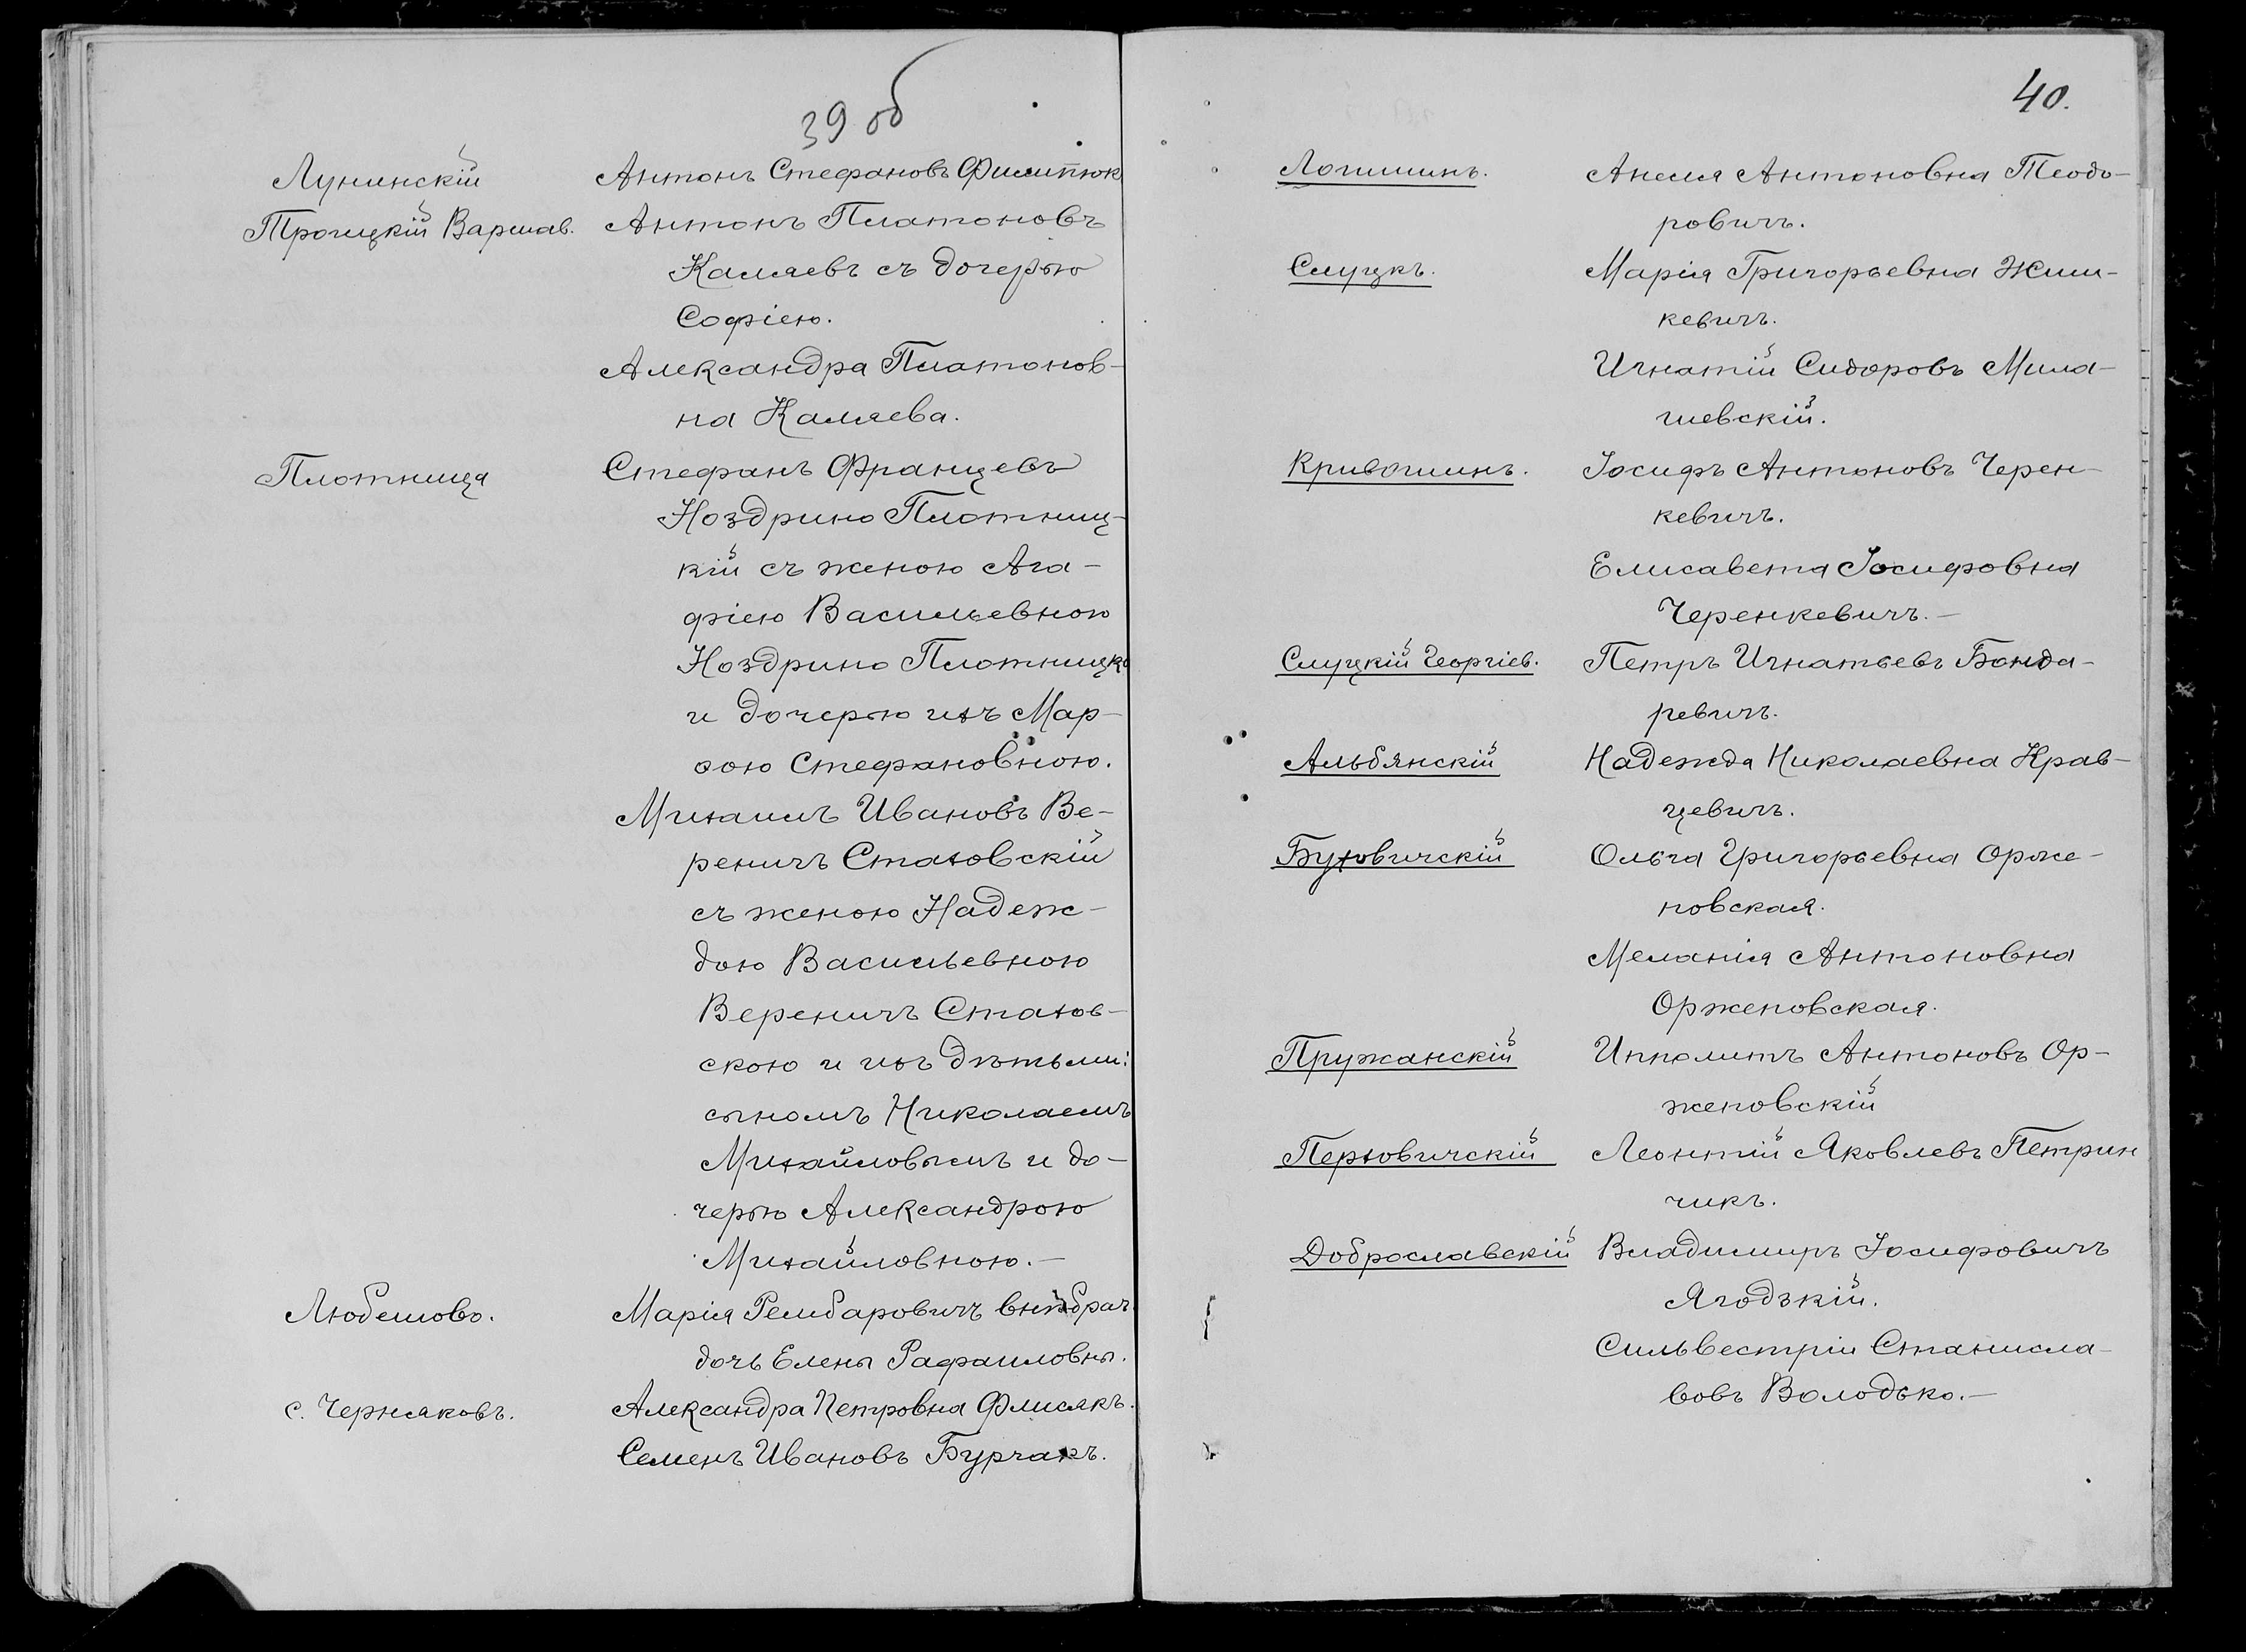 39 об
Лунинскій Антонъ Стефановъ Филипюк
Троицкій Варшав. Антонъ Платоновъ
Каляевъ съ дочерью
Софіею.
Александра Платонов-
на Каляева.
Плотница Стефанъ Францевъ
Ноздрино Плотниц-
кій съ женою Ага-
фіею Васильевною
Ноздрино Плотницк.
и дочерью ихъ Мар-
ѳою Стефановною.
Михаилъ Ивановъ Ве-
реничъ Стаховскій
съ женою Надеж-
дою Васильевною
Вереничъ Стахов-
скою и ихъ дѣтьми:
сыномъ Николаемъ
Михайловымъ и до-
черью Александрою
Михайловною.—
Любешово. Марія Рембаровичъ внѣбрач.
дочь Елены Рафаиловны.
с. Черняковъ. Александра Петровна Флисякъ.
Семенъ Ивановъ Бурчакъ.
40.
Логишинъ. Анеля Антоновна Теодо-
ровичъ.
Слуцкъ. Марія Григорьевна Жиш-
кевичъ.
Игнатій Сидоровъ Мила-
шевскій.
Кривошинъ. Іосифъ Антоновъ Черен-
кевичъ.
Елисавета Іосифовна
Черенкевичъ.—
Слуцкій Георгіев. Петръ Игнатьевъ Бонда-
ревичъ.
Альбянскій Надежда Николаевна Крав-
цевичъ.
Буховичскій Ольга Григорьевна Орже-
повская.
Меланія Антоновна
Оржеповская.
Пружанскій Ипполитъ Антоновъ Ор-
жеповскій
Перховичскій Леонтій Яковлевъ Петрин
чикъ.
Доброславскій Владимиръ Іосифовичъ
Ягодзкій.
Сильвестрій Станисла-
вовъ Володько.—